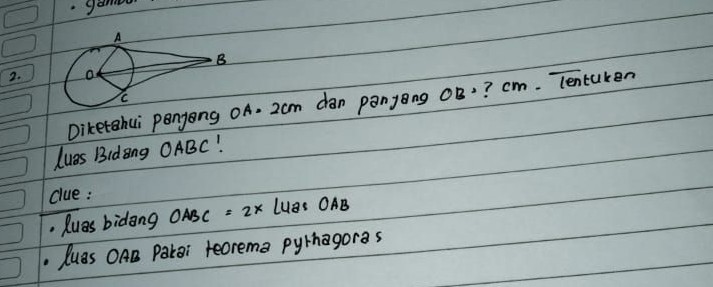 2.
A
B
O
C
Diketahui panjang OA = 2cm dan panjang OB = ? cm. Tentukan
luas Bidang OABC!
Clue :
• luas bidang OABC = 2x Luas OAB
• luas OAB Pakai teorema pythagoras